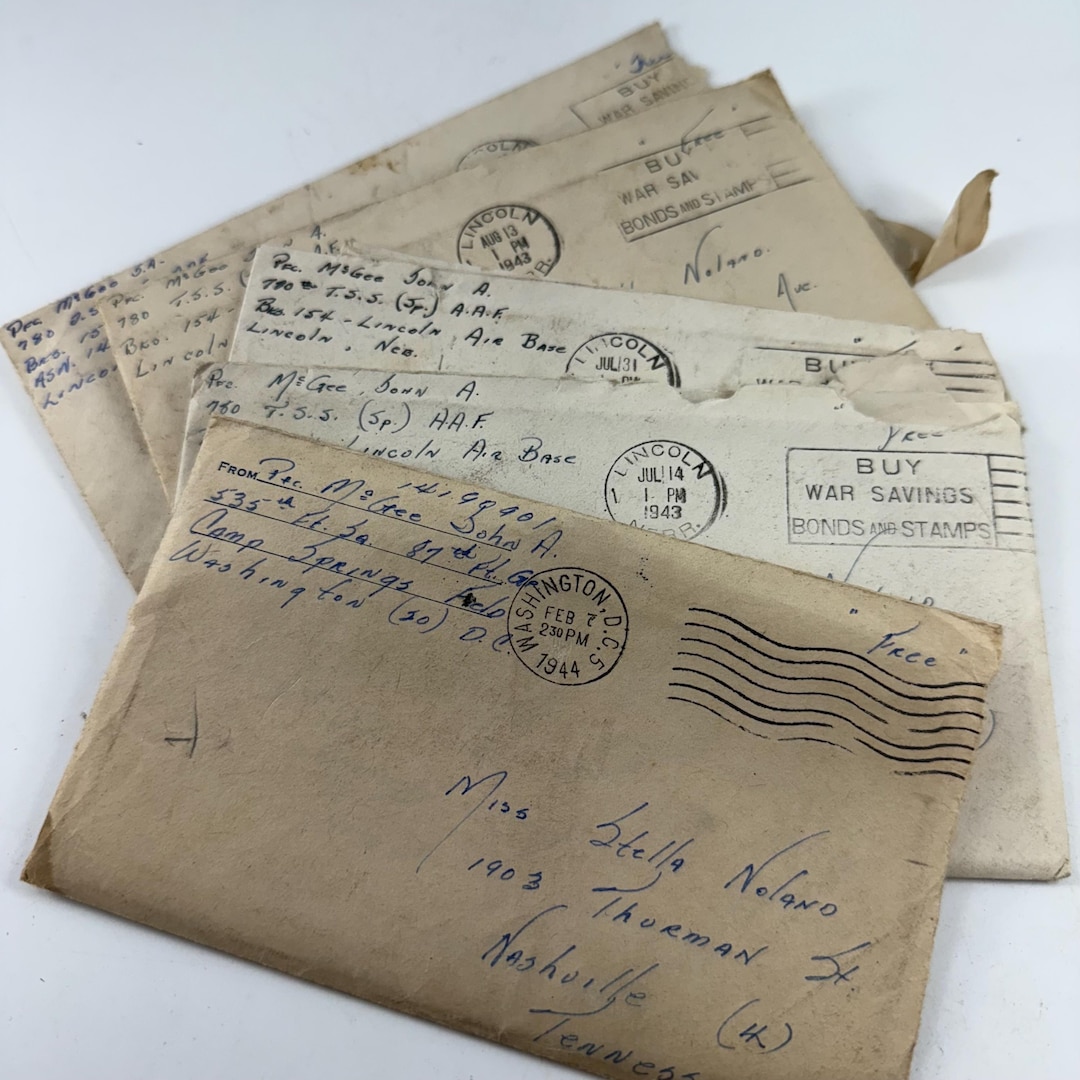 "Free
BUY
WAR SAVIN
COLN
"Free
BU
WAR SAV
BONDS AND STAMP
LINCOLN
AUG 13
1 PM
1943
Noland.
Ave.
A.
Pfc. McGee J.A.
780
BKS. 15
ASN. 14
Lincol
Pfc. McGee
780 T.S.S. (
BKS. 154 -
Lincoln
Pfc. McGee John A.
780th T.S.S. (Sp.) A.A.F.
Bks. 154 - Lincoln Air Base
Lincoln, Neb.
LINCOLN
JUL 31
BU
Pfc. McGee, John A.
780 T.S.S. (Sp.) A.A.F.
incoln Air Base
LINCOLN
JUL 14
1 - PM
1943
NEBR.
"Free
BUY
WAR SAVINGS
BONDS AND STAMPS
14199901
FROM Pfc. McGee John A.
535th Ft. Sq. 87th Ft. Gp.
Camp Springs Field
Washington (20) D.C.
WASHINGTON, D.C. 5
FEB 7
2 30 PM
1944
"Free"
Miss Stella Noland
1903 Thurman St.
Nashville (4)
Tenness